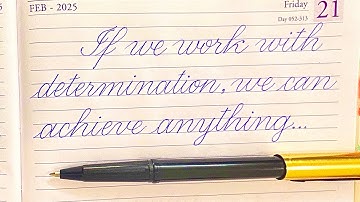 FEB - 2025
Friday 21
Day 052-313
If we work with
determination, we can
achieve anything...